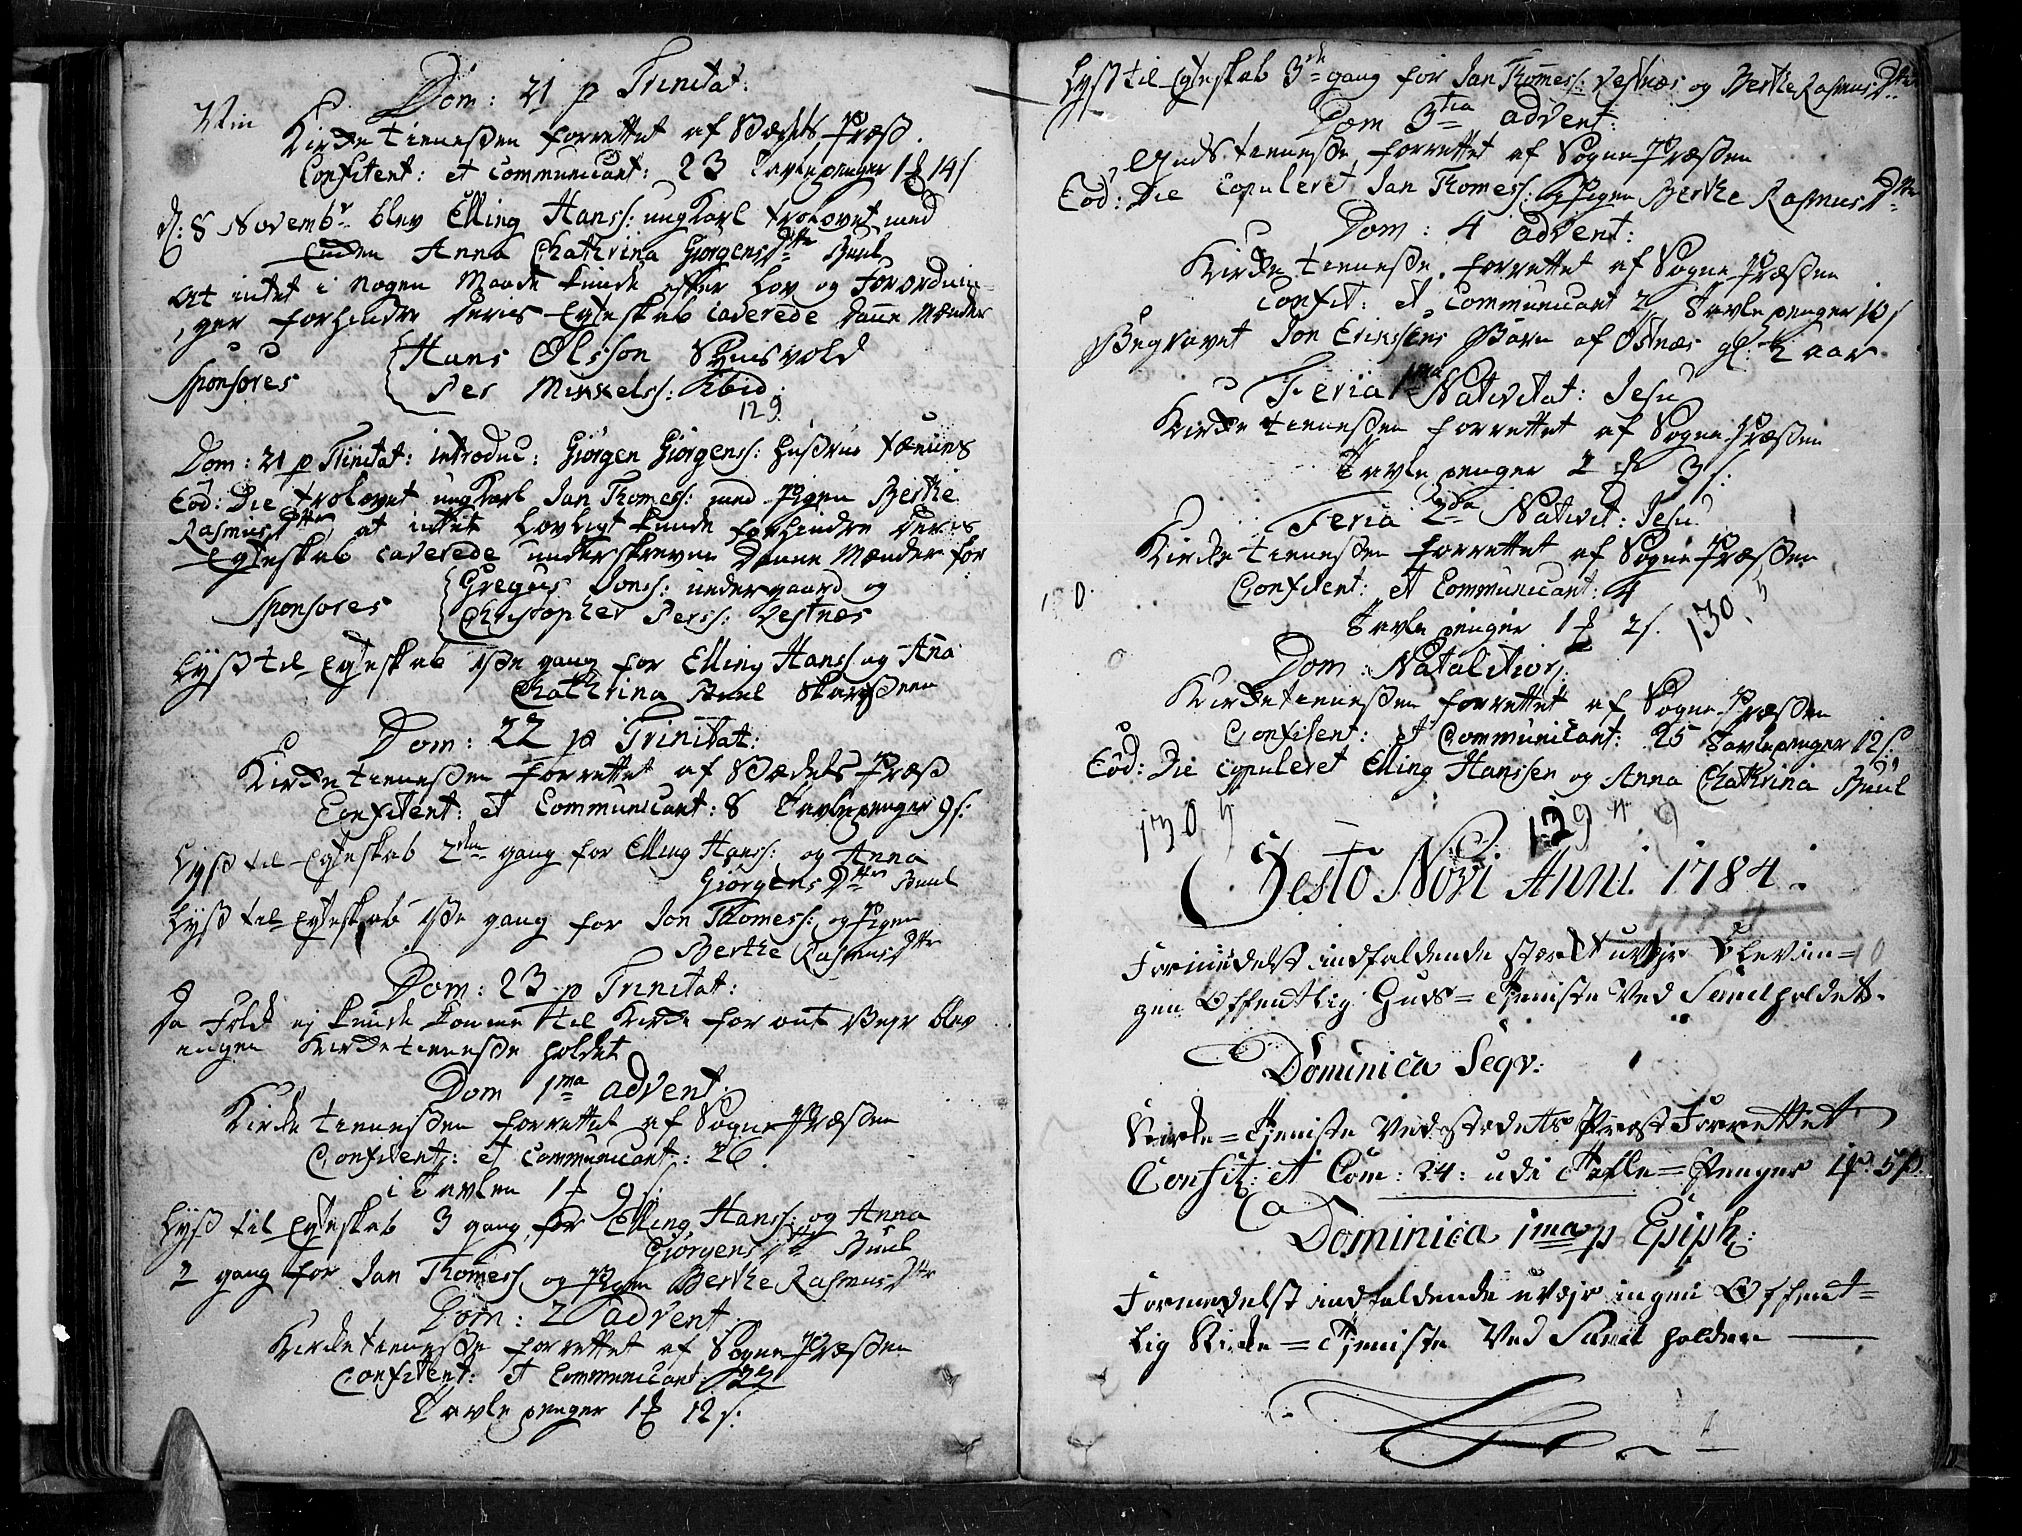 Dom: 21 p Trinitat:
Vin Kirke tienneßen forrettet af Stædets Præst.
Confitent: et communicant: 23 Tavlepenger 1 ₰ 14 s
d: 8 Novembr blev Elling Hanss: ungKarl trolovet med
Enken Anna Chathrina Giørgens Dttr Buul
At intet i nogen Maade kunde efter Lov og Forordnin-
ger forhindre deris Egteskab caverede Danne Mænder
Sponsores Hans Olsson Synisvold
Per Mikkelss: Ibid:
129
Dom: 21 p Trinitat: introduc: Giørgen Giørgenss: Hustrue
Eod: Die trolovet ungKarl Jan Thomess: med Pigen Berthe
Rasmus Dttr at intet Lovligt kunde forhindre deres
Egteskab caverede underskrevne Danne Mænder for
Sponsores Gregus Jonss: undergaard og
Christopher Perss: Vestnæs
Lyst til Egteskab 1ste gang for Elling Hanss og Anna
Chathrina Buul
Dom: 22 p Trinitat:
Kirke tienneßen forrettet af Stædets Præst
Confitent: et Communicant: 8 Tavlepenger 9 s:
Lyst til Egteskab 2den gang for Elling Hanss: og Anna
Giørgens Dttr Buul
Lyst til Egteskab 1ste gang for Jon Thomess: og Pigen
Berthe Rasmus Dttr
Dom: 23 p Trinitat:
Da Folk ej kunde komme til Kirke for ont Vejr blev
ingen Kirke tienneste holdet
Dom 1ma advent
Kirke tienneßen forrettet af Sogne Præsten
Confitent: et communicant: 26.
i Tavlen 1 ₰ 9 s:
Lyst til Egteskab 3 gang for Elling Hanss: og Anna
Giørgens Dttr Buul
2 gang for Jan Thomess og Pigen Berthe Rasmus Dttr
Dom: 2 advent
Kirke tienneste forrettet af Sogne Præsten
Confitent: et Communicant: 22
Tavle penger 1 ₰ 12 s:
Lyst til Egteskab 3de gang for Jan Thomess: Vestnæs og Berthe Rasmus Dttr
Dom 3tia advent:
Guds tienneste forrettet af Sogne Præsten
Eod: Die copuleret Jan Thomess: og Pigen Berthe Rasmus Dttr
Dom: 4 advent:
Kirke tienneste forrettet af Sogne Præsten
Confit: et Communicant 2 Tavle penger 10 s
Begravet Jon Erikssens Barn af Østnæs gl: 2 aar
Feria 1ma Nativitat: Jesu
Kirke tienneßen forrettet af Sogne Præsten
Tavle penger 2 ₰ 3 s:
Feria 2da Nativit: Jesu
Kirke tienneßen forrettet af Sogne Præsten
Confitent: et Communicant: 4
Tavle penger 1 ₰ 2 s.
130
Dom: Natalitior:
Kirke tienneßen forrettet af Sogne Præsten
Confitent: et Communicant: 25 Tavlepenger 12 s:
Eod: Die copuleret Elling Hanssen og Anna Chathrina Buul
130 129
Festo Novi Anni 1784.
Formedelst indfaldende stærk uvejr blev in=
gen Offentlig Guds=Tjeniste Ved Sand holdet.
Dominica Seqv:
Kirke=Tjeniste Ved stedets Præst Forrettet
Confit: et Com: 24: udi Tafle=Penger 1 ₰. 5 s.
Dominica 1ma p Epiph:
Formedelst indfaldende uvejr ingen Offent=
lig Kirke=Tjeniste Ved Sand holden